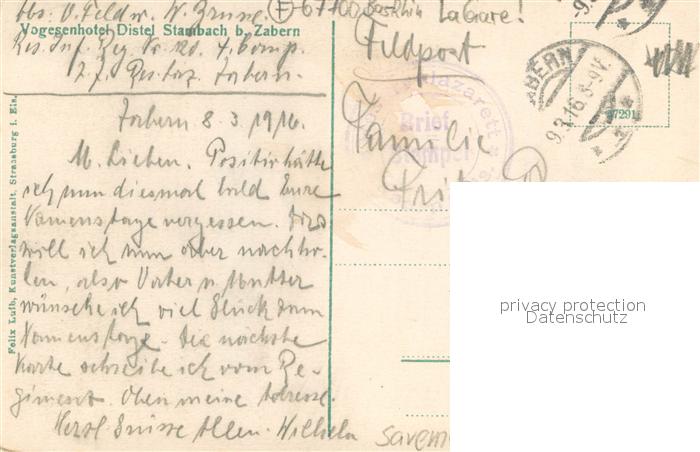 Abs. V. Feldw. W.
(F) 67700 Bas-Rhin La Gare!
Vogesenhotel Distel Stambach b. Zabern
Res. Inf. Reg. Nr. 20. 4. Comp.
Z. Z. Res. Laz. Zabern.
Feldpost
ZABERN
9.3.16. 8-9V.
37291
Zabern 8.3.1916.
M. Lieben. Positiv hätte
ich nun diesmal bald Eure
Namenstage vergessen. Dies
will ich nun aber nachho-
len, also Vater u. Mutter
wünsche ich viel Glück zum
Namenstage. Die nächste
Karte schreibe ich vom Re-
giment. Oben meine Adresse.
Herzl. Grüsse Allen. Wilhelm
Felix Luib, Kunstverlagsanstalt, Strassburg i. Els.
lazarett
Brief
Stempel
Familie
privacy protection
Datenschutz